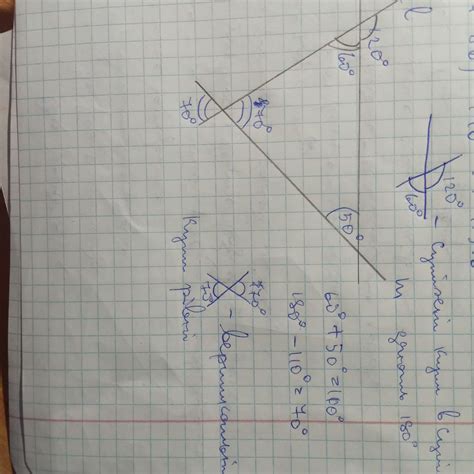 l
120°
60°
70°
70°
50°
m
120°
60°
– Суміжні кути в сумі
дають 180°
60°+50°=110°
180°-110°=70°
70°
70°
– вертикальні
Кути рівні